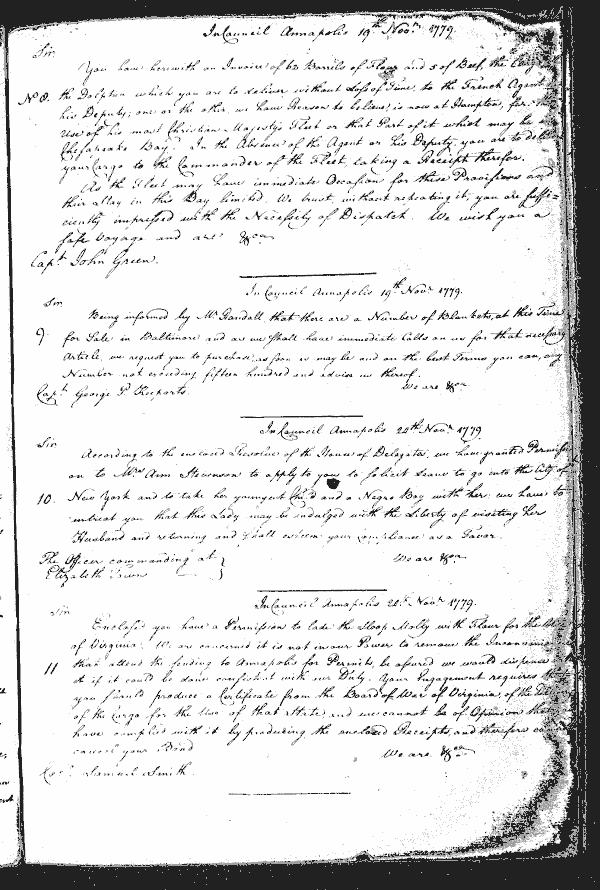 In Council Annapolis 19th Novr 1779.
Sir,
You have herewith an Invoice of 62 Barrels of Flour and 5 of Beef, the Cargo
No 8. the Dolphin which you are to deliver without Loss of Time, to the French Agent or
his Deputy; one or the other, we have Reason to believe, is now at Hampton, for the
Use of his most Christian Majesty's Fleet or that Part of it which may be
Chesapeake Bay. In the Absence of the Agent or his Deputy, you are to deliver
your Cargo to the Commander of the Fleet, taking a Receipt therefor.
As the Fleet may have immediate Occasion for these Provisions and
their Stay in this Bay limited. We trust, without repeating it, you are suffi=
ciently impressed with the Necessity of Dispatch. We wish you a
safe Voyage and are &ca
Capt. John Green.
In Council Annapolis 19th Novr 1779.
Sir
Being informed by Mr Randall that there are a Number of Blankets, at this Time
9. for Sale in Baltimore and as we shall have immediate Calls on us for that necessary
Article, we request you to purchase as soon as may be and on the best Terms you can, any
Number not exceeding fifteen hundred and advise us thereof.
We are &ca
Capt. George P. Keeports.
In Council Annapolis 20th Novr 1779
Sir
According to the enclosed Resolve of the House of Delegates, we have granted Permissi
on to Mrs Ann Stevenson to apply to you to solicit Leave to go into the City of
10. New York and to take her youngest Child and a Negro Boy with her; we have to
intreat you that this Lady may be indulged with the Liberty of visiting her
Husband and returning and shall esteem your compliance as a Favor.
The Officer commanding at We are &ca
Elizabeth Town
In Council Annapolis 20th Novr 1779.
Sir
Enclosed you have a Permission to lade the Sloop Molly with Flour for the
of Virginia. We are concerned it is not in our Power to remove the Inconvenience
11 that attend the sending to Annapolis for Permits, be assured we would dispense
it if it could be done consistent with our Duty. Your Engagement requires that
you should produce a Certificate from the Board of War of Virginia, of the
of the Cargo for the Use of that State, and we cannot be of Opinion that
have complied with it by producing the enclosed Receipts, and therefore
cancel your Bond
We are &ca
Samuel Smith